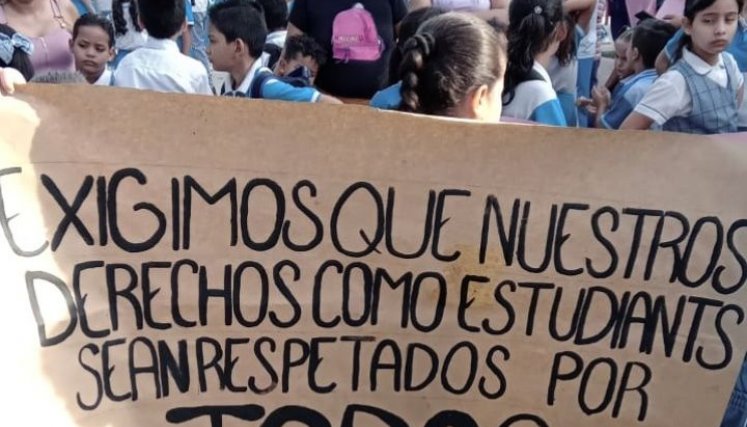 EXIGIMOS QUE NUESTROS
DERECHOS COMO ESTUDIANTS
SEAN RESPETADOS POR
TODOS